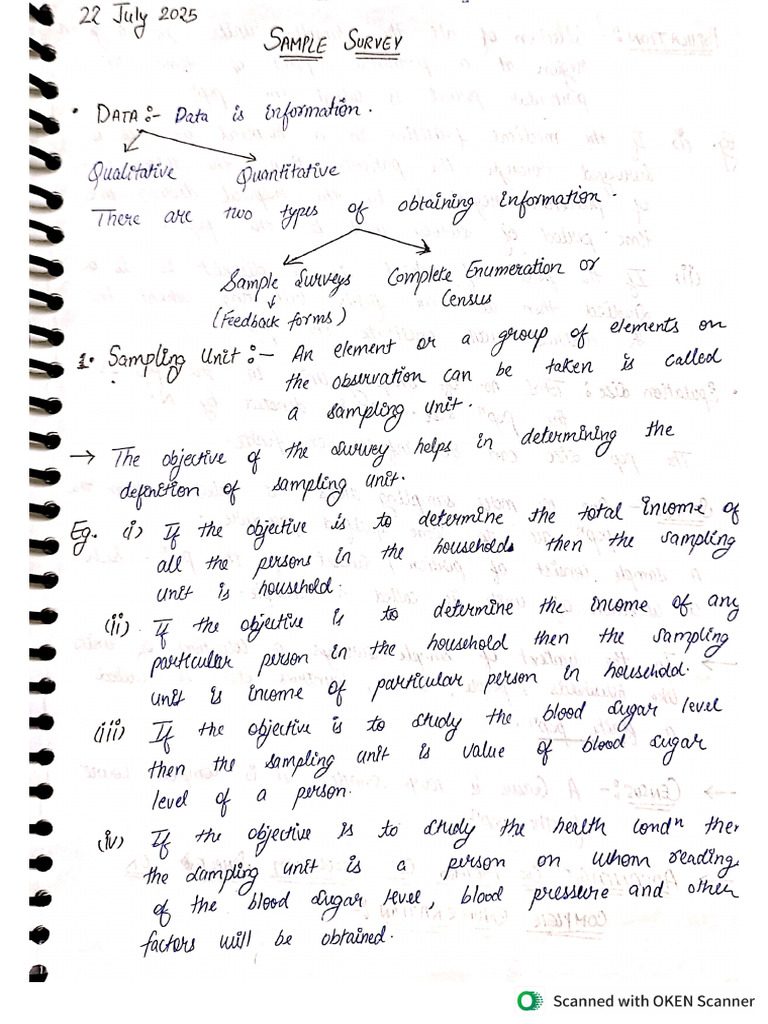 22 July 2025
SAMPLE SURVEY
• DATA :- Data is information.
Qualitative Quantitative
There are two types of obtaining information.
Sample Surveys Complete Enumeration or
Census
(Feedback forms)
1. Sampling Unit :- An element or a group of elements on
the observation can be taken is called
a sampling unit.
→ The objective of the survey helps in determining the
definition of sampling unit.
Eg. (i) If the objective is to determine the total income of
all the persons in the households then the sampling
unit is household.
(ii) If the objective is to determine the income of any
particular person in the household then the sampling
unit is income of particular person in household.
(iii) If the objective is to study the blood sugar level
then the sampling unit is value of blood sugar
level of a person.
(iv) If the objective is to study the health condⁿ then
the sampling unit is a person on whom reading
of the blood sugar level, blood pressure and other
factors will be obtained.
Scanned with OKEN Scanner